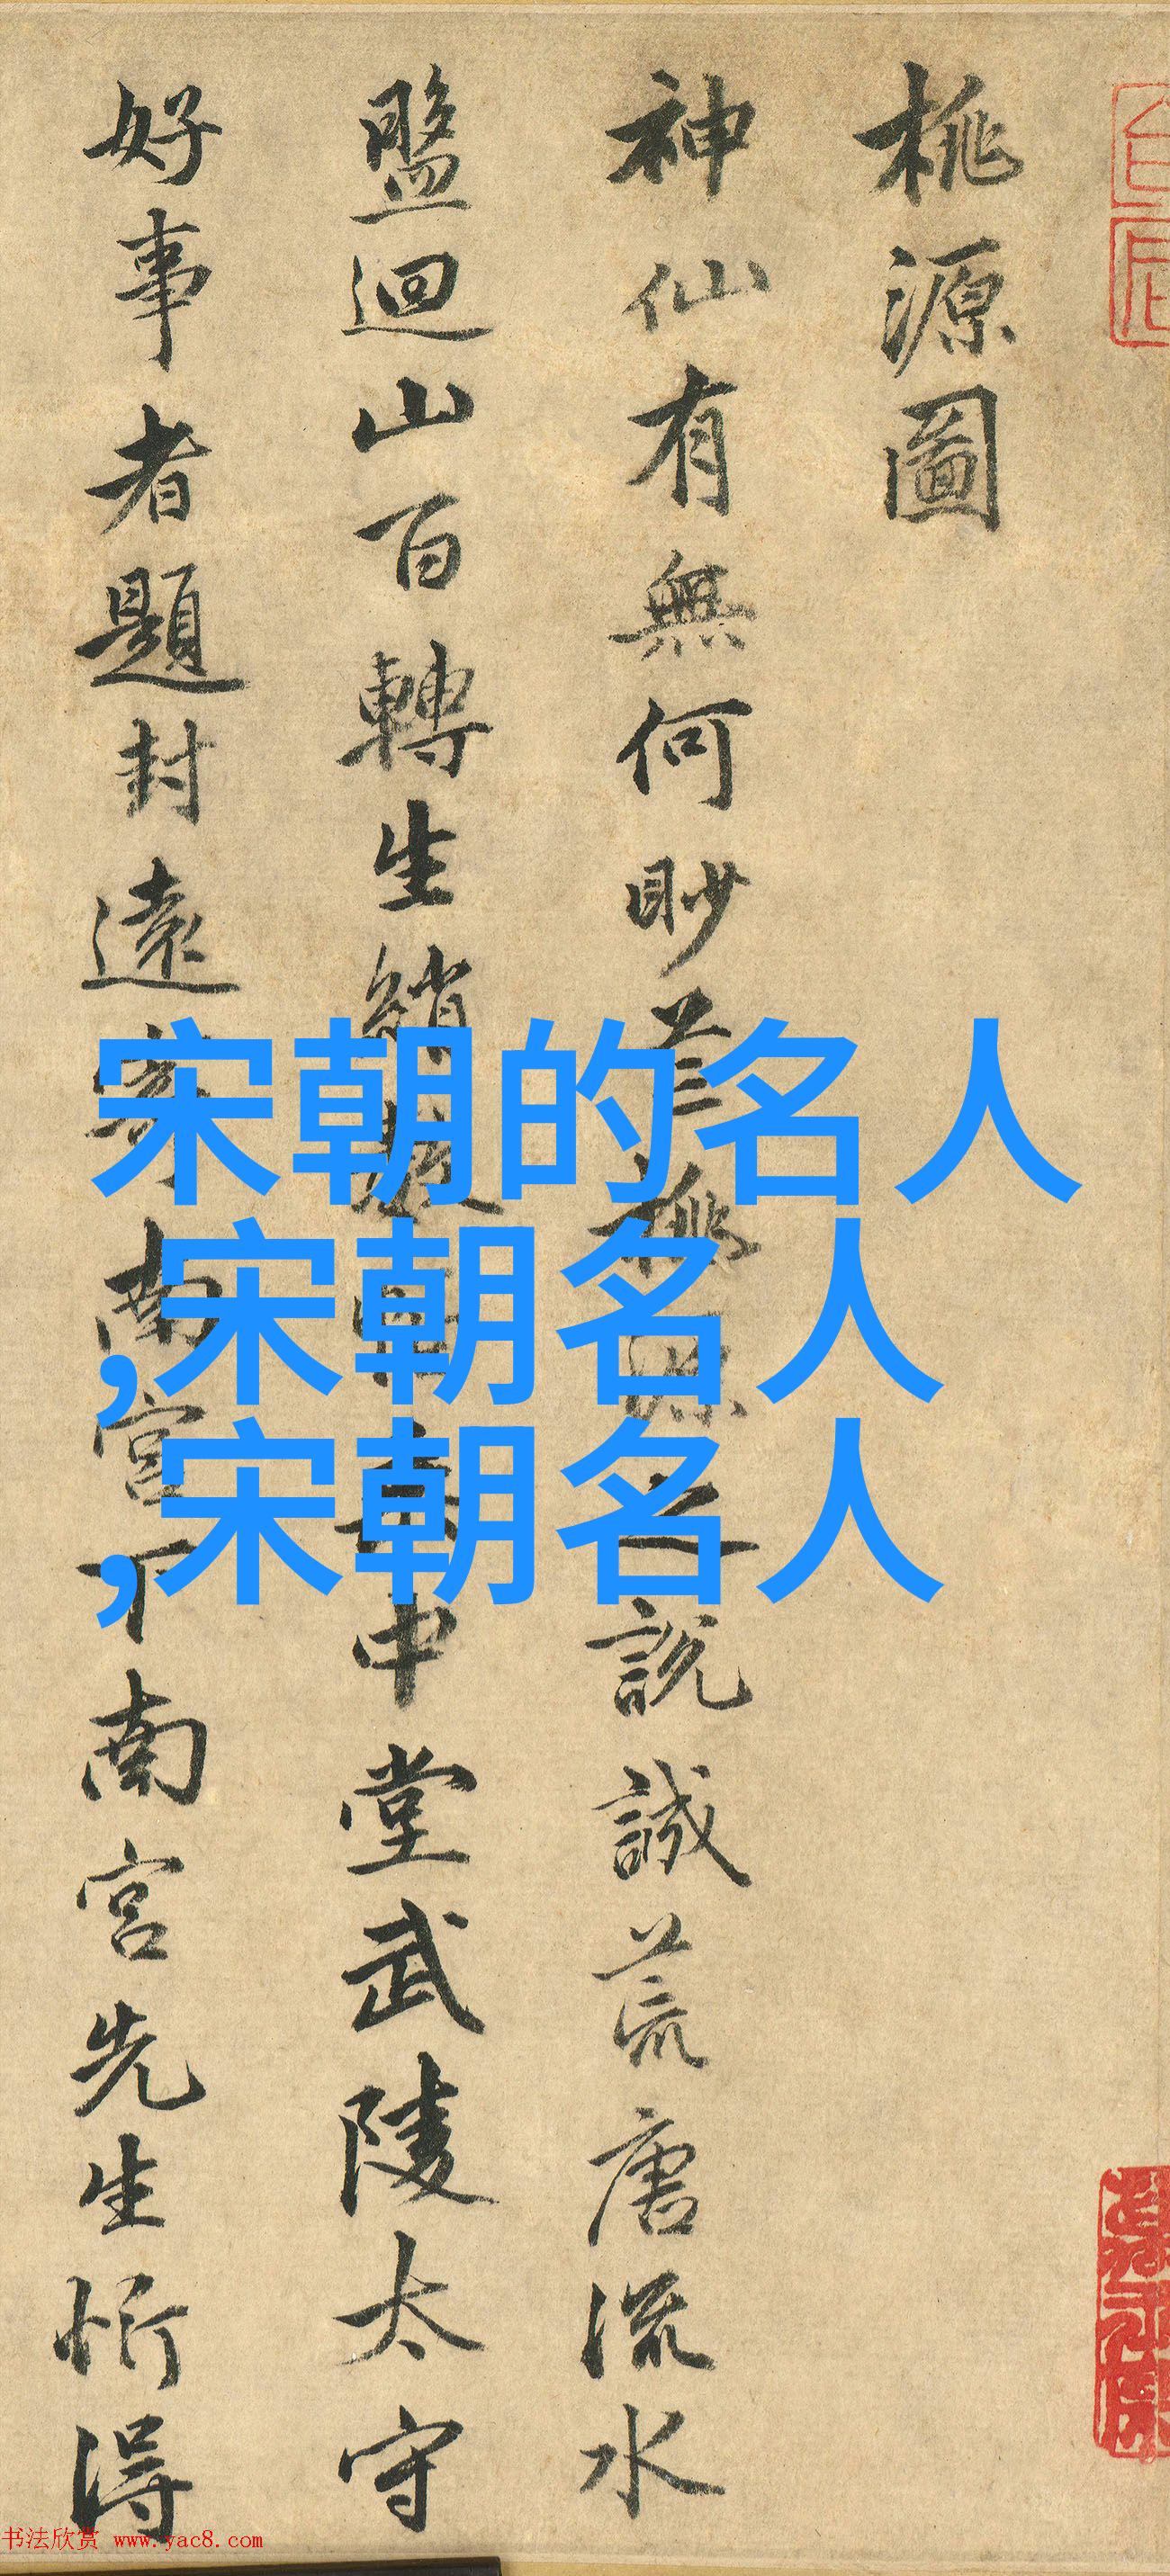 桃源圖
神仙有無何眇芒桃源之說誠荒唐流水
盤迴山百轉生綃數幅垂中堂武陵太守
好事者題封遠寄南宮下南宮先生忻得
宋朝的名人
,宋朝名人
,宋朝名人
书法欣赏 www.yac8.com